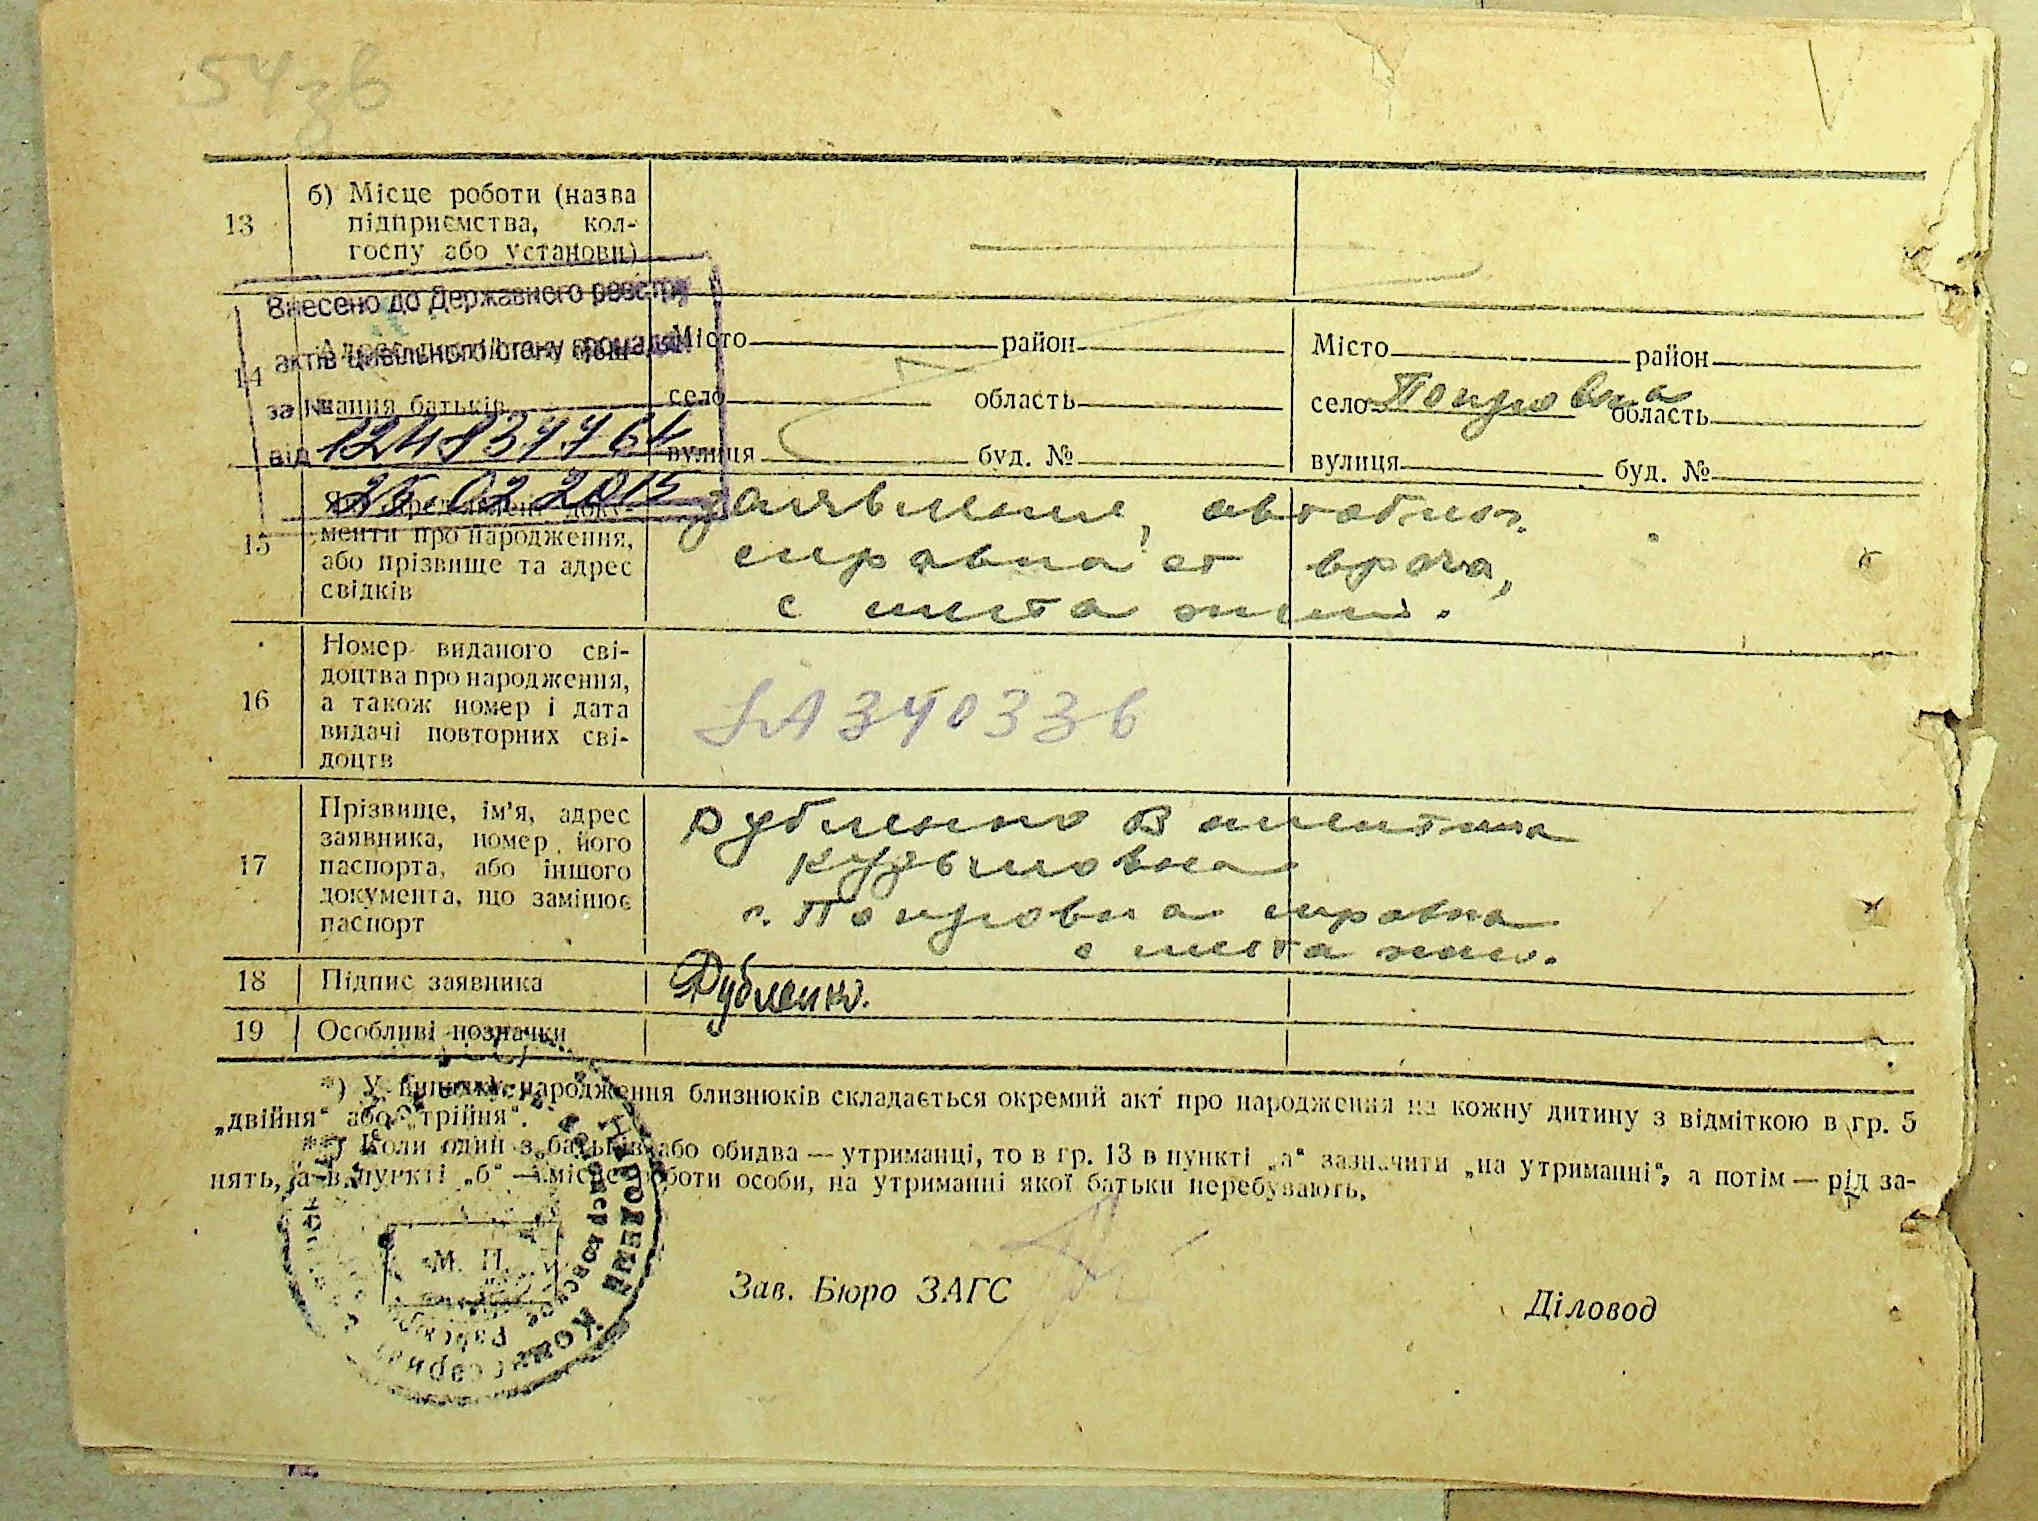 54зв
13
б) Місце роботи (назва
підприємства, кол-
госпу або установи)
Внесено до Державного реєстру
актів цивільного стану громадян
за №
від 1248377 64
26.02 2015
14
вання батьків
Місто район
село область
вулиця буд. №
Місто район
село Покровка область
вулиця буд. №
15
менти про народження,
або прізвище та адрес
свідків
заявление,
справка от врача,
с места жит.
16
Номер виданого сві-
доцтва про народження,
а також номер і дата
видачі повторних сві-
доцтв
340336
17
Прізвище, ім'я, адрес
заявника, номер його
паспорта, або іншого
документа, що замінює
паспорт
Рубленко Валентина
Кузьмовна
с. Покровка справка
с места жит.
18
Підпис заявника
Рубленко.
19
Особливі позначки
*) У випадку народження близнюків складається окремий акт про народження на кожну дитину з відміткою в гр. 5
„двійня“ або „трійня“.
**) Коли один з батьків або обидва — утриманці, то в гр. 13 в пункті „а“ зазначити „на утриманні“, а потім — рід за-
нять, а в пункті „б“ — місце роботи особи, на утриманні якої батьки перебувають.
М. П.
Зав. Бюро ЗАГС
Діловод